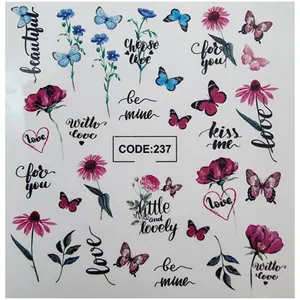 beautiful
Choose
love
for
you
be
mine
love
With
love
CODE:237
kiss
me
love
for
you
love
little
and
lovely
love
be
mine
With
love